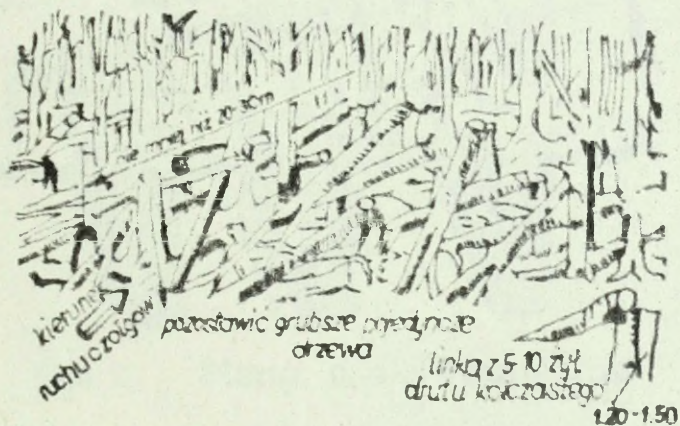 nie mniej niż 20-30m
kierunek
ruchu czołgów
pozostawić grubsze pojedyncze
drzewa
linką z 5-10 żył
drutu kolczastego
1.20-1.50